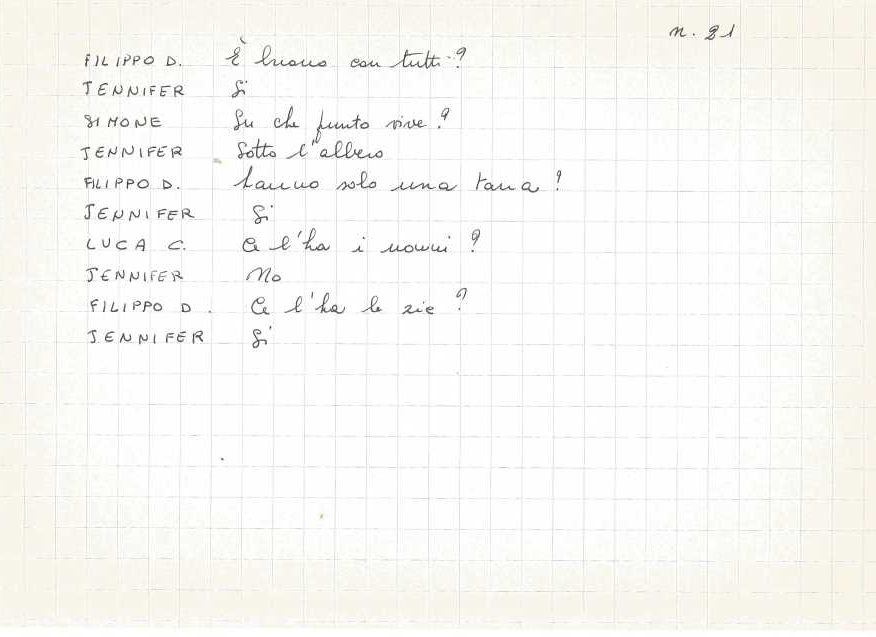 n. 21
FILIPPO D. È buono con tutti?
JENNIFER Si
SIMONE Su che punto vive?
JENNIFER Sotto l'albero
FILIPPO D. Hanno solo una tana?
JENNIFER Si
LUCA C. Ce l'ha i nonni?
JENNIFER No
FILIPPO D. Ce l'ha le zie?
JENNIFER Si